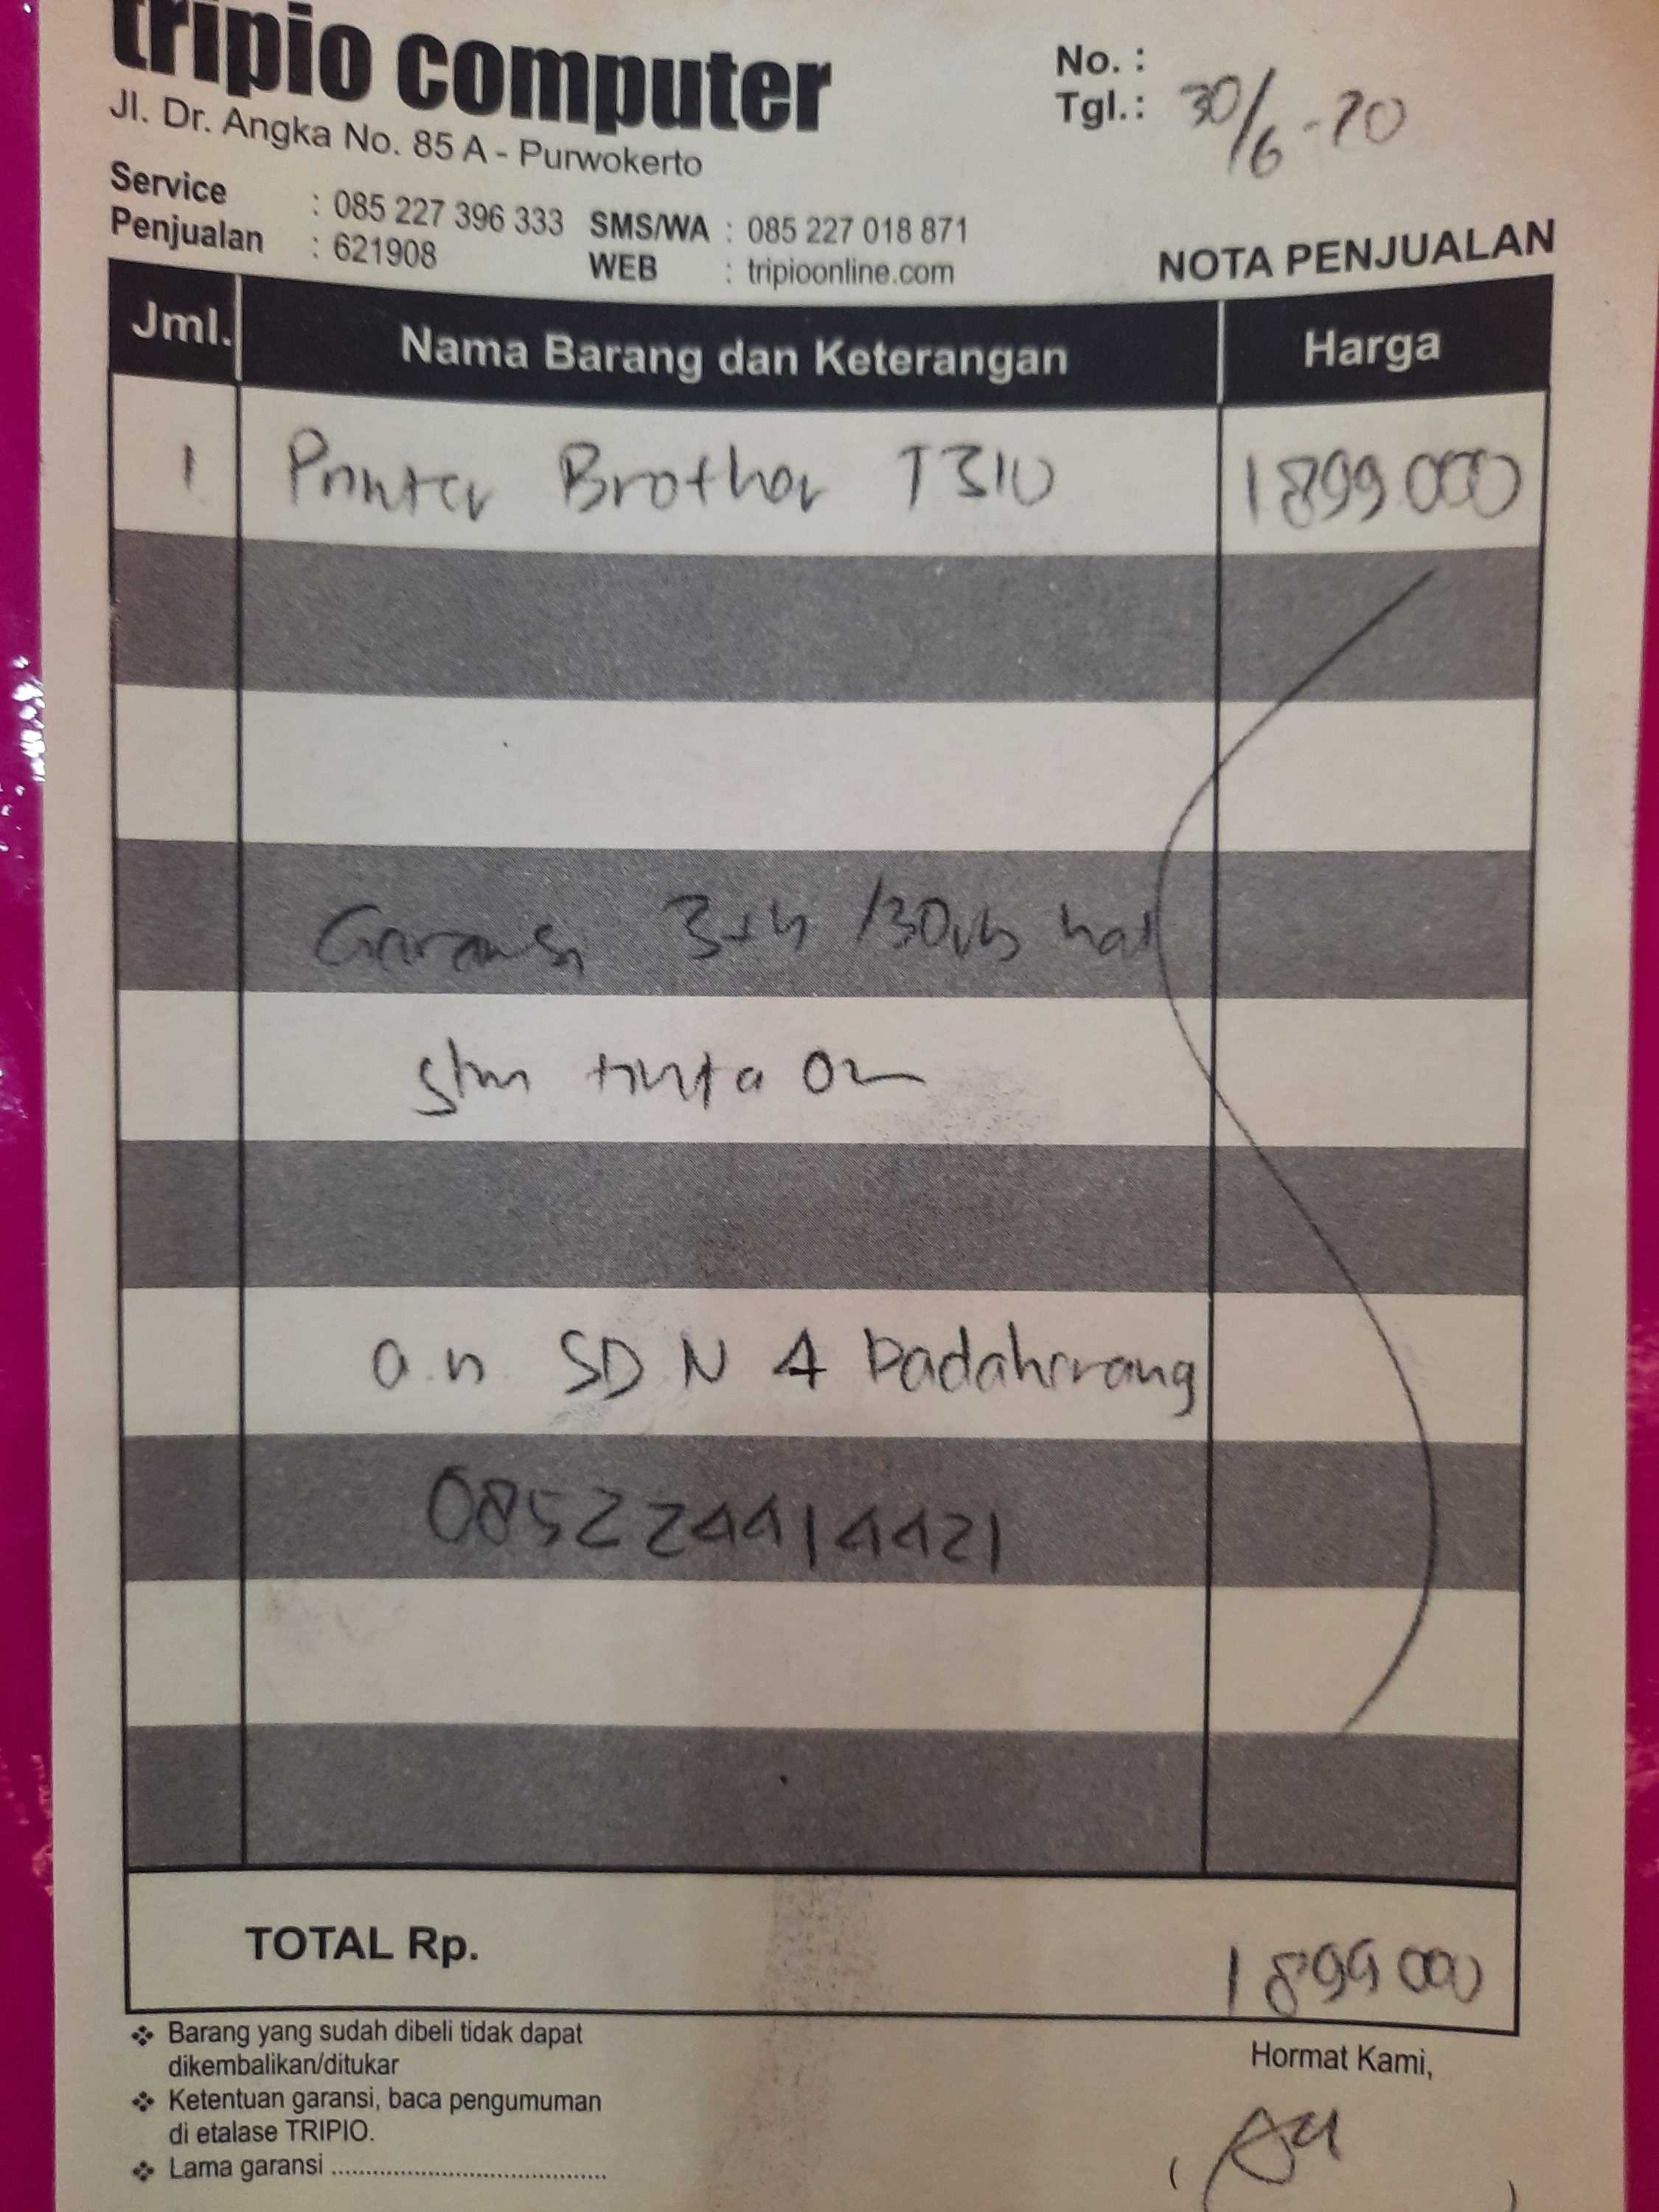 tripio computer
Jl. Dr. Angka No. 85 A - Purwokerto
No. :
Tgl. : 30/6-20
Service : 085 227 396 333 SMS/WA : 085 227 018 871
Penjualan : 621908 WEB : tripioonline.com
NOTA PENJUALAN
Jml. Nama Barang dan Keterangan Harga
1 Printer Brother T310 1899000
Garansi 3th /30rb hal
tinta
a.n SDN 4 Padaherang
085224414421
TOTAL Rp. 1899000
❖ Barang yang sudah dibeli tidak dapat
dikembalikan/ditukar
❖ Ketentuan garansi, baca pengumuman
di etalase TRIPIO.
❖ Lama garansi ..........................................
Hormat Kami,